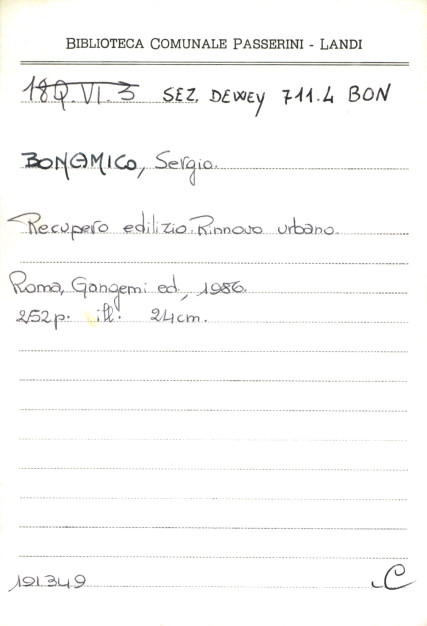 BIBLIOTECA COMUNALE PASSERINI - LANDI
18Q.VI.3 SEZ. DEWEY 711.4 BON
BONAMICO, Sergio.
Recupero edilizio. Rinnovo urbano.
Roma, Gangemi ed., 1986.
252p. ill. 24cm.
191349 C